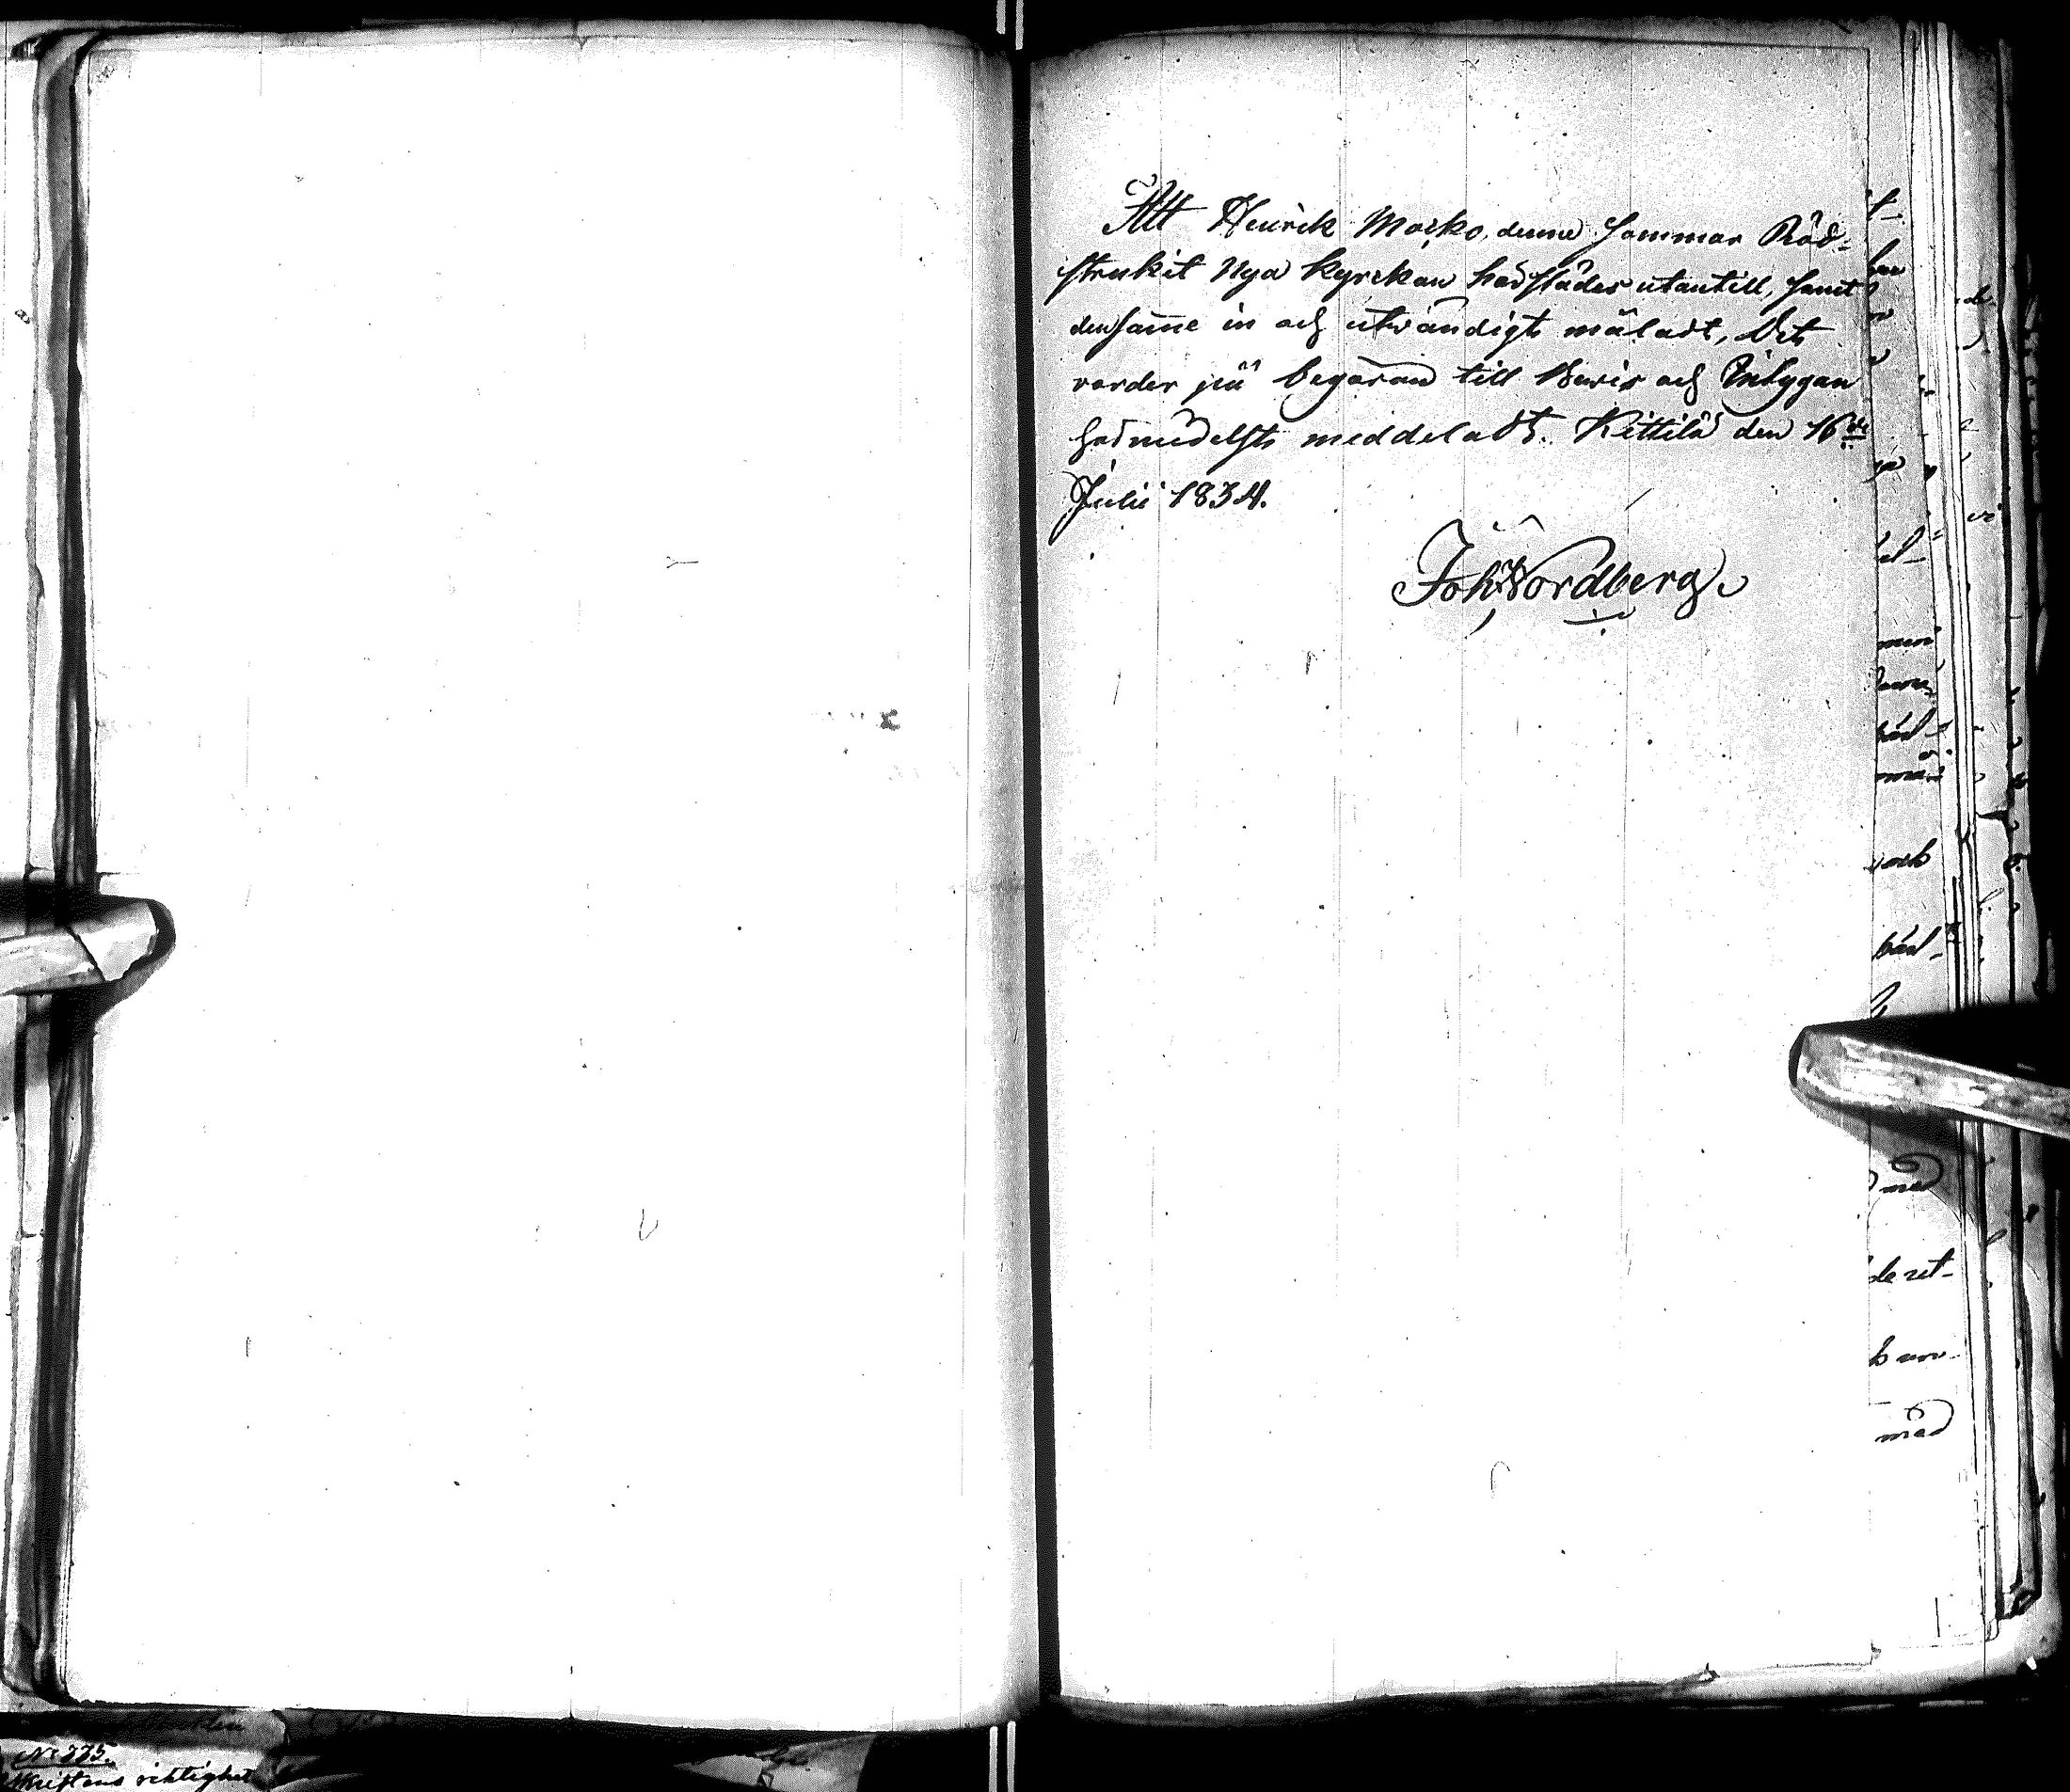 Att Henrik Marko, denne Sommar Röd-
strukit Nya Kyrckan härstädes utantill, samt
densame in och utwändigt måladt, det
varder på begäran till Bevis och Intygan
härmedelst meddeladt. Kittilä den 16de
Julii 1834.
Joh. Nordberg.
mun
och
med
de ret-
med
No 335.
riktighet